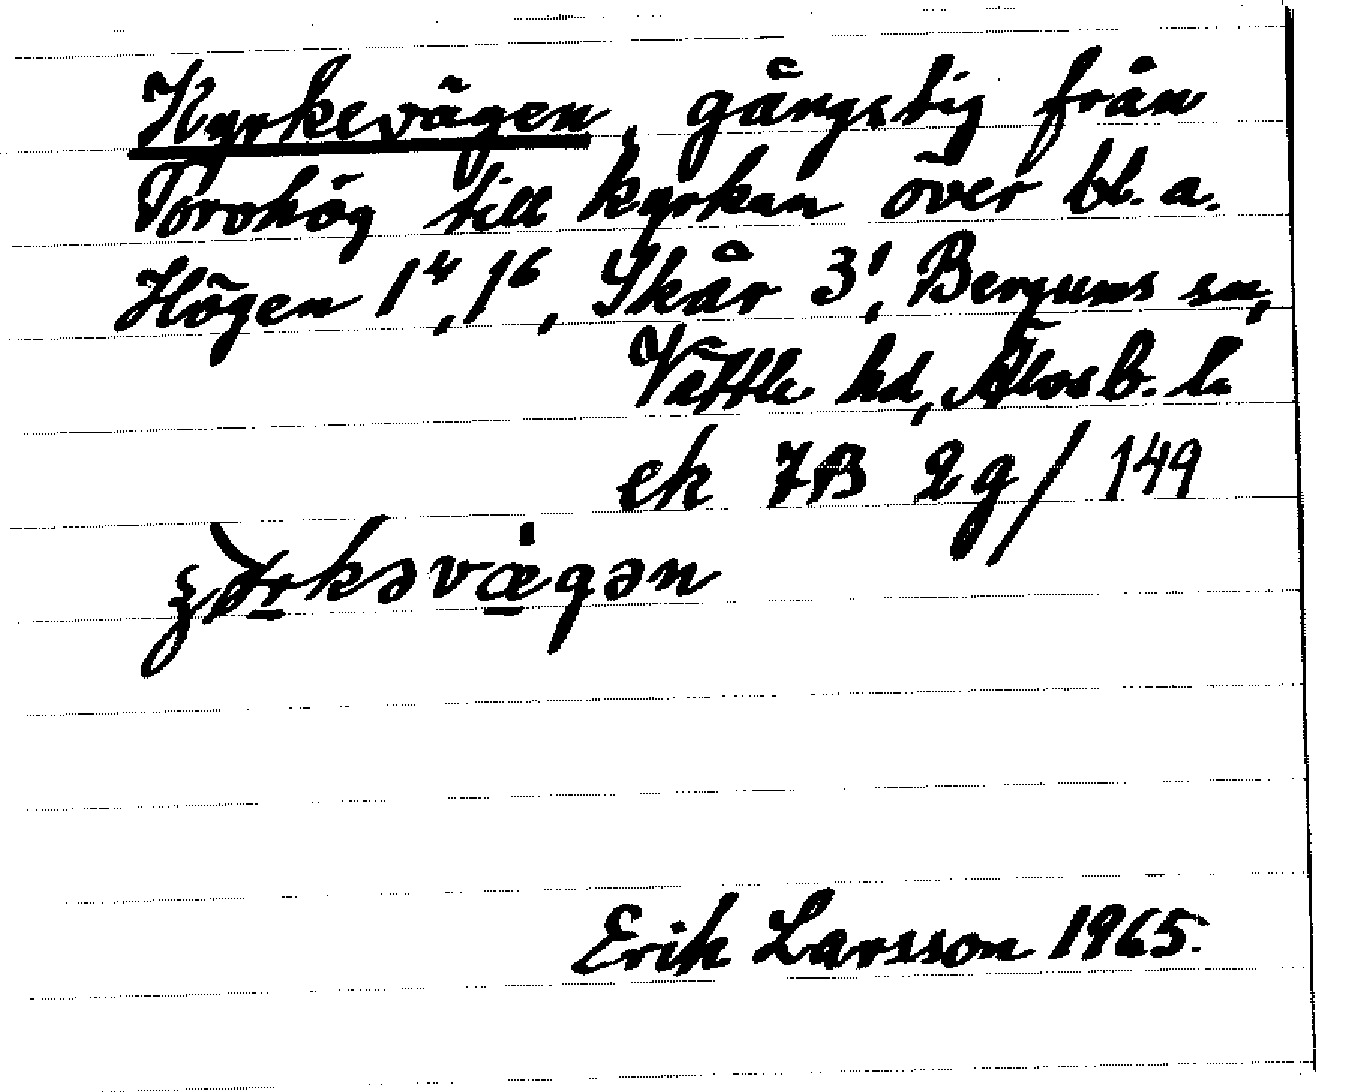 Kyrkevägen, gångstig från
Torohög till kyrkan över bl.a.
Högen 1⁴, 1⁶, Skår 3¹, Bergums sn,
Vättle hd, Älvsb. l.
ek 7B 2g/149
Erik Larsson 1965.